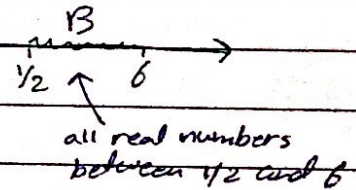 B
1/2 6
all real numbers
between 1/2 and 6